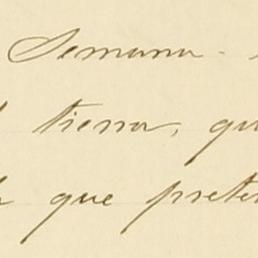 Semana -
tierra, qu
que preten